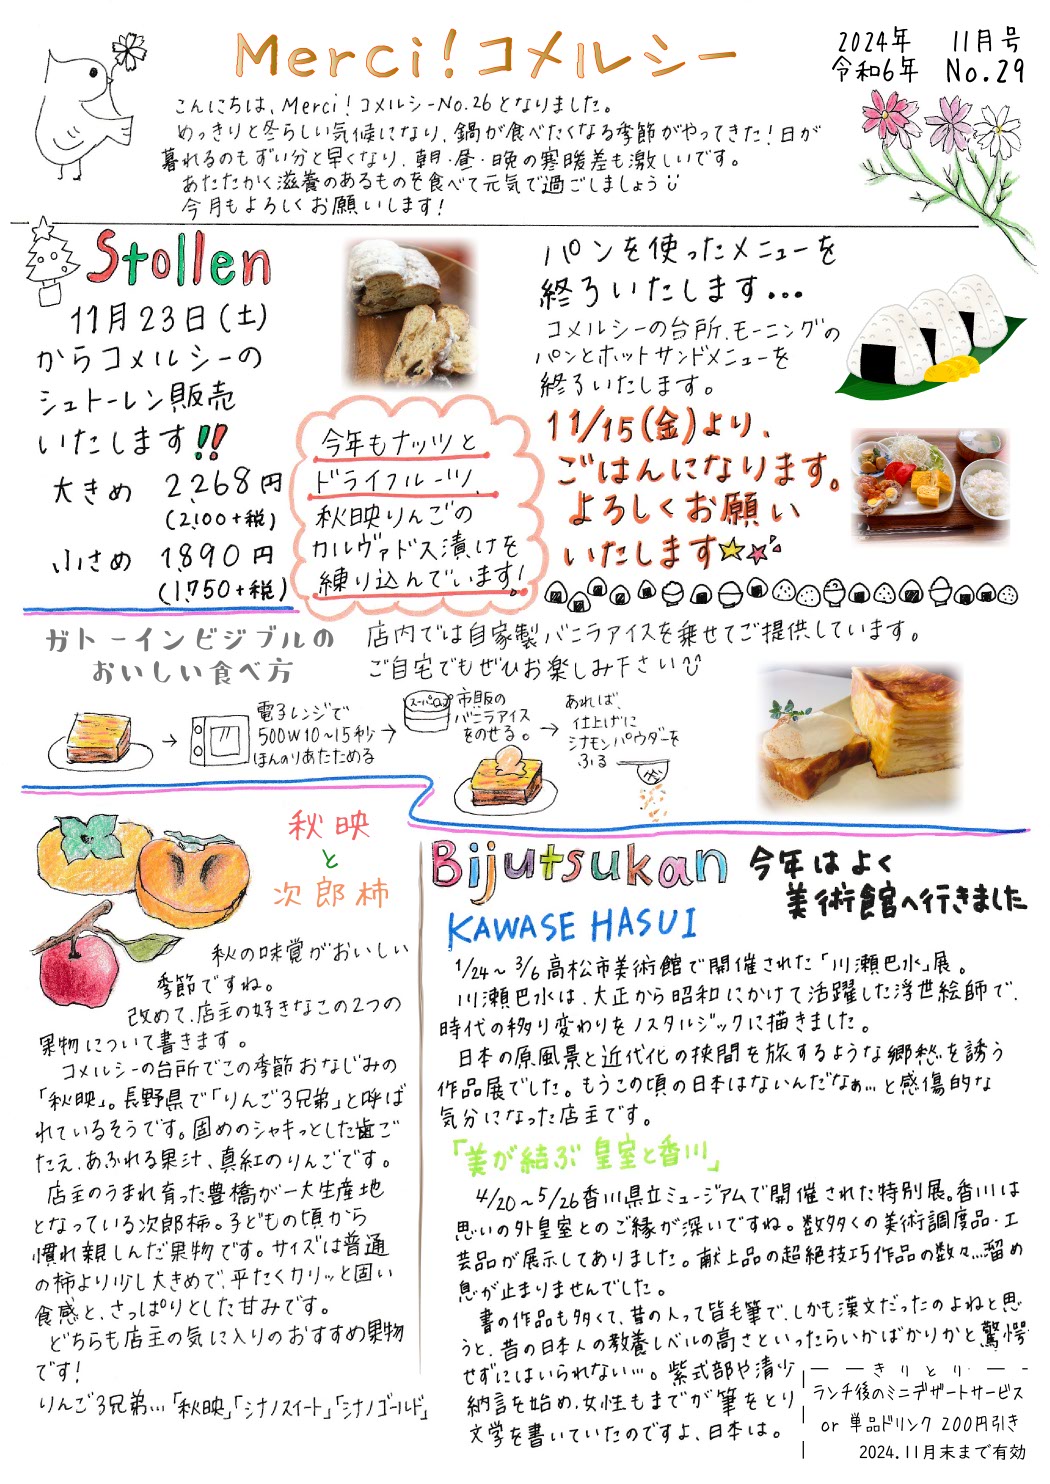 Merci！コメルシー
2024年 11月号
令和6年 No.29
こんにちは、Merci！コメルシーNo.26となりました。
めっきりと冬らしい気候になり、鍋が食べたくなる季節がやってきた！日が
暮れるのもずい分と早くなり、朝・昼・晩の寒暖差も激しいです。
あたたかく滋養のあるものを食べて元気で過ごしましょう
今月もよろしくお願いします！
Stollen
11月23日(土)
からコメルシーの
シュトーレン販売
いたします!!
大きめ 2,268円
(2,100+税)
小さめ 1,890円
(1,750+税)
今年もナッツと
ドライフルーツ、
秋映りんごの
カルヴァドス漬けを
練り込んでいます！
パンを使ったメニューを
終ろいたします...
コメルシーの台所、モーニングの
パンとホットサンドメニューを
終ろいたします。
11/15(金)より、
ごはんになります。
よろしくお願い
いたします
ガトーインビジブルの
おいしい食べ方
店内では自家製バニラアイスを乗せてご提供しています。
ご自宅でもぜひお楽しみ下さい
電子レンジで
500W10~15秒
ほんのりあたためる
スーパーカップ
市販の
バニラアイス
をのせる。
あれば、
仕上げに
シナモンパウダーを
ふる
秋映
と
次郎柿
秋の味覚がおいしい
季節ですね。
改めて、店主の好きなこの2つの
果物について書きます。
コメルシーの台所でこの季節おなじみの
「秋映」。長野県で「りんご3兄弟」と呼ば
れているそうです。固めのシャキっとした歯ご
たえ、あふれる果汁、真紅のりんごです。
店主のうまれ育った豊橋が一大生産地
となっている次郎柿。子どもの頃から
慣れ親しんだ果物です。サイズは普通
の柿より少し大きめで、平たくカリッと固い
食感と、さっぱりとした甘みです。
どちらも店主の気に入りのおすすめ果物
です！
りんご3兄弟…「秋映」「シナノスイート」「シナノゴールド」
Bijutsukan
今年はよく
美術館へ行きました
KAWASE HASUI
1/24~3/6高松市美術館で開催された「川瀬巴水」展。
川瀬巴水は、大正から昭和にかけて活躍した浮世絵師で、
時代の移り変わりをノスタルジックに描きました。
日本の原風景と近代化の狭間を旅するような郷愁を誘う
作品展でした。もうこの頃の日本はないんだなぁ…と感傷的な
気分になった店主です。
「美が結ぶ 皇室と香川」
4/20~5/26香川県立ミュージアムで開催された特別展。香川は
思いの外皇室とのご縁が深いですね。数多くの美術調度品・工
芸品が展示してありました。献上品の超絶技巧作品の数々…溜め
息が止まりませんでした。
書の作品も多くて、昔の人って皆毛筆で、しかも漢文だったのよねと思
うと、昔の日本人の教養レベルの高さといったらいかばかりかと驚愕
せずにはいられない…。紫式部や清少
納言を始め、女性もまでが筆をとり
文学を書いていたのですよ、日本は。
きりとり
ランチ後のミニデザートサービス
or 単品ドリンク 200円引き
2024.11月末まで有効